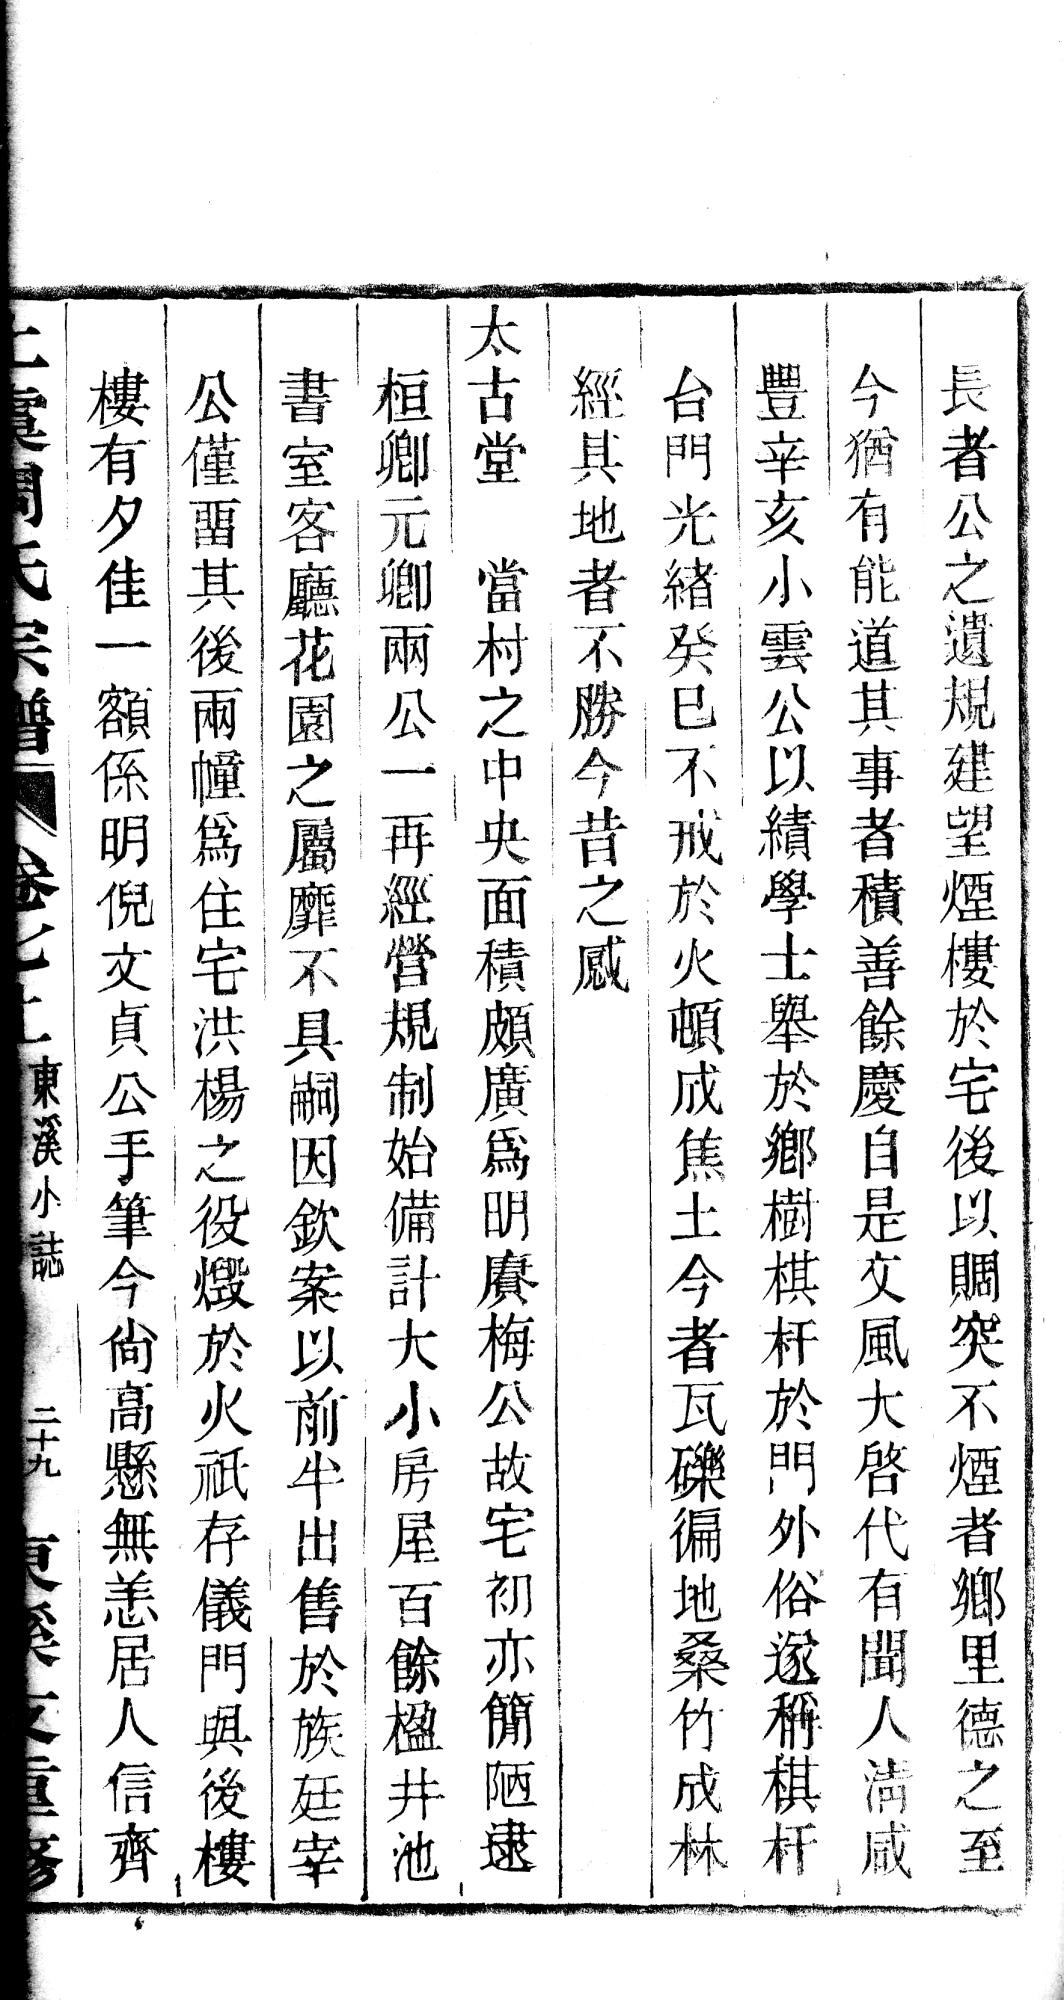 長者公之遺規建望煙樓於宅後以賙突不煙者鄉里德之至
今猶有能道其事者積善餘慶自是文風大啓代有聞人淸咸
豐辛亥小雲公以績學士舉於鄉樹棋杆於門外俗遂稱棋杆
台門光緒癸巳不戒於火頓成焦土今者瓦礫徧地桑竹成林
經其地者不勝今昔之感
太古堂　當村之中央面積頗廣爲明賡梅公故宅初亦簡陋逮
桓卿元卿兩公一再經營規制始備計大小房屋百餘楹井池
書室客廳花園之屬靡不具嗣因欽案以前半出售於族廷宰
公僅畱其後兩幢爲住宅洪楊之役燬於火祇存儀門與後樓
樓有夕佳一額係明倪文貞公手筆今尙高懸無恙居人信齊
上虞周氏宗譜 卷七上 東溪小誌 二十九 東溪支重修